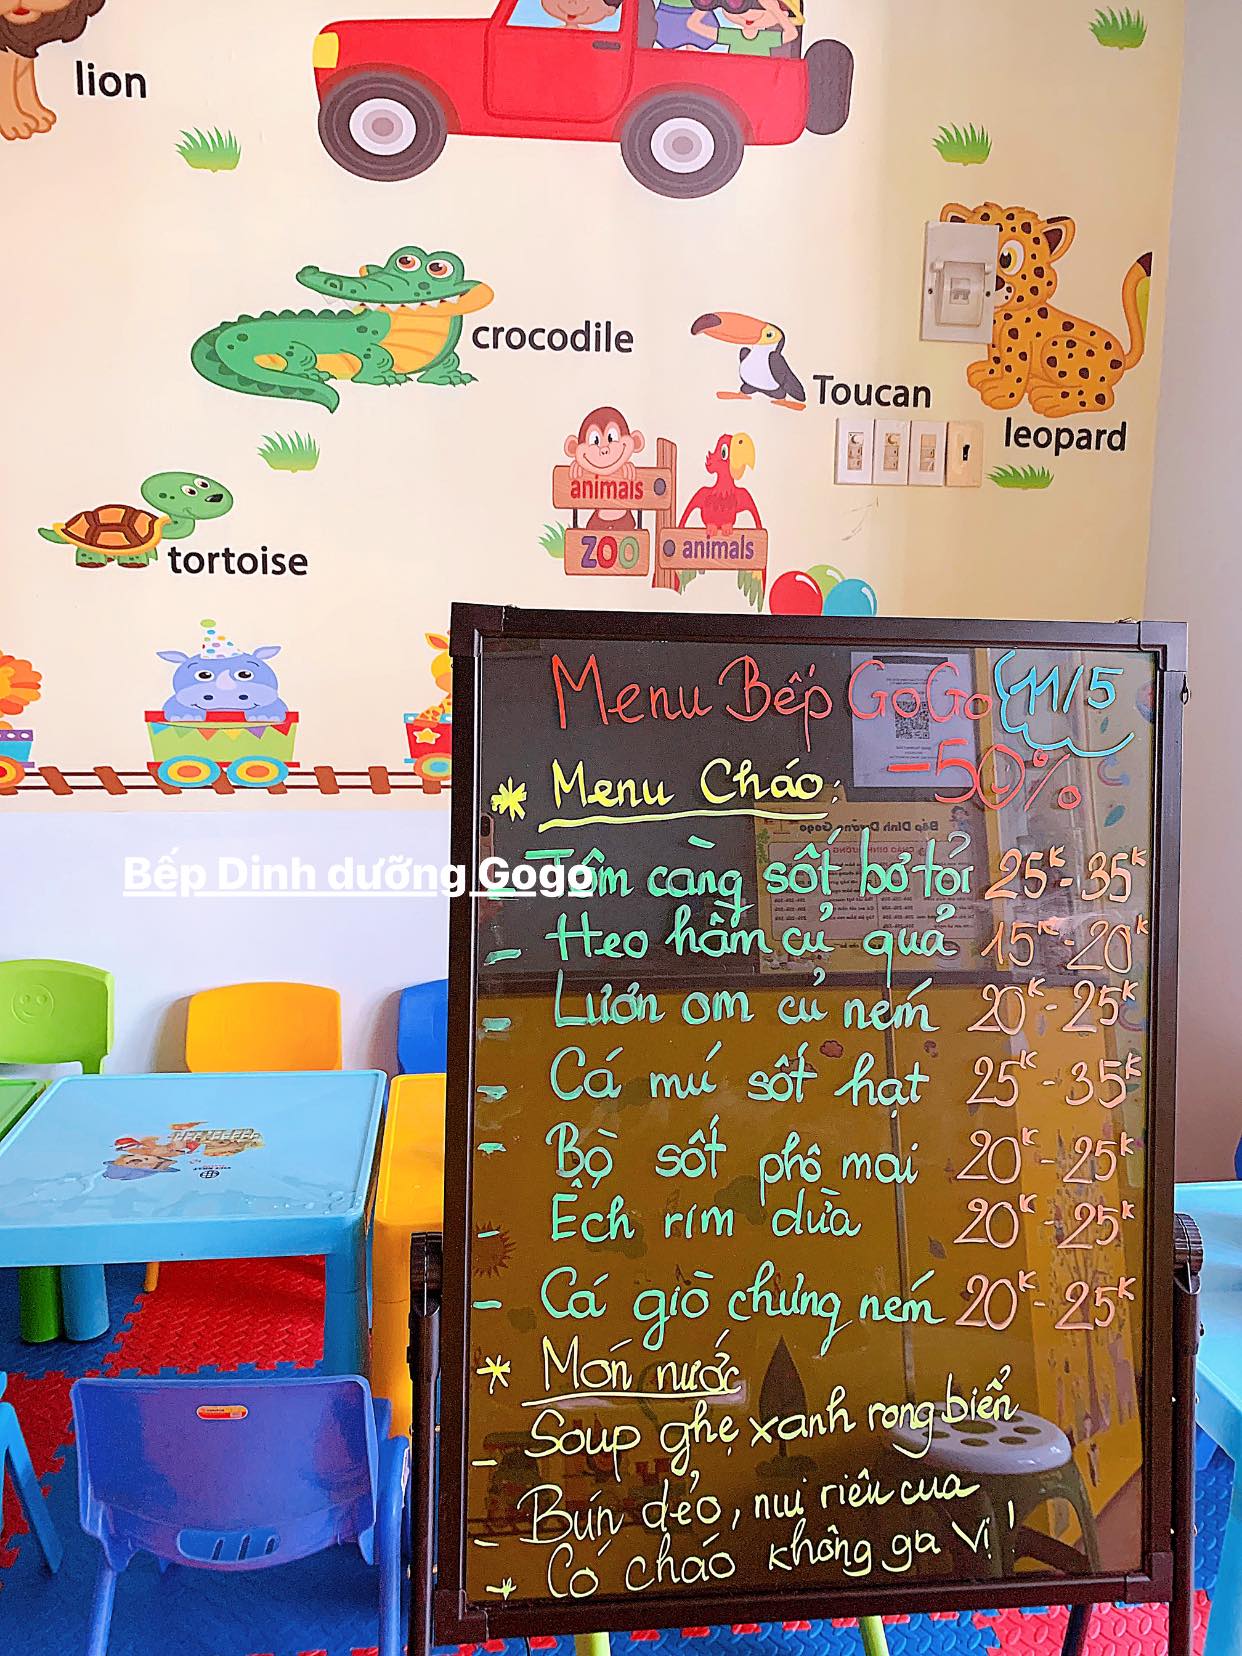 lion
crocodile
Toucan
leopard
animals
ZOO
animals
tortoise
Menu Bếp GoGo 11/5
-50%
* Menu Cháo:
Bếp Dinh dưỡng Gogo
- Tôm càng sốt bơ tỏi 25K - 35K
- Heo hầm củ quả 15K - 20K
- Lươn om củ ném 20K - 25K
- Cá mú sốt hạt 25K - 35K
- Bò sốt phô mai 20K - 25K
- Ếch rim dừa 20K - 25K
- Cá giò chưng ném 20K - 25K
* Món nước
- Soup ghẹ xanh rong biển
- Bún dẻo, nui riêu cua
+ Có cháo không ga vị!